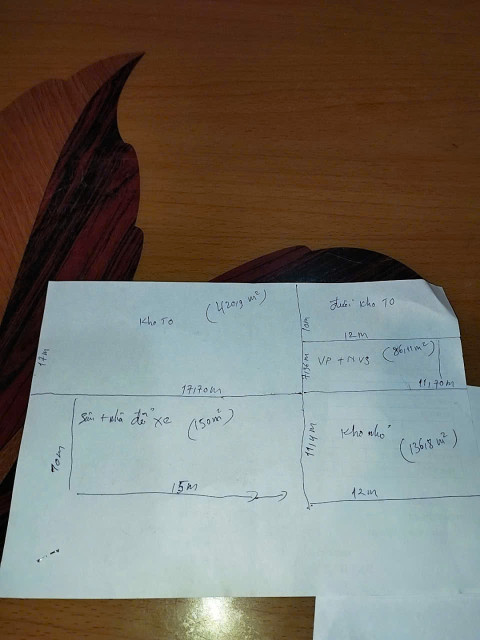 Kho TO
(42013 m²)
17m
17,70m
đuôi kho TO
10m
12m
7,36m
VP + NVS
(86,11m²)
11,70m
Sân + nhà để xe
(150m²)
10m
15m
Kho nhỏ
(136,8 m²)
11,4m
12m